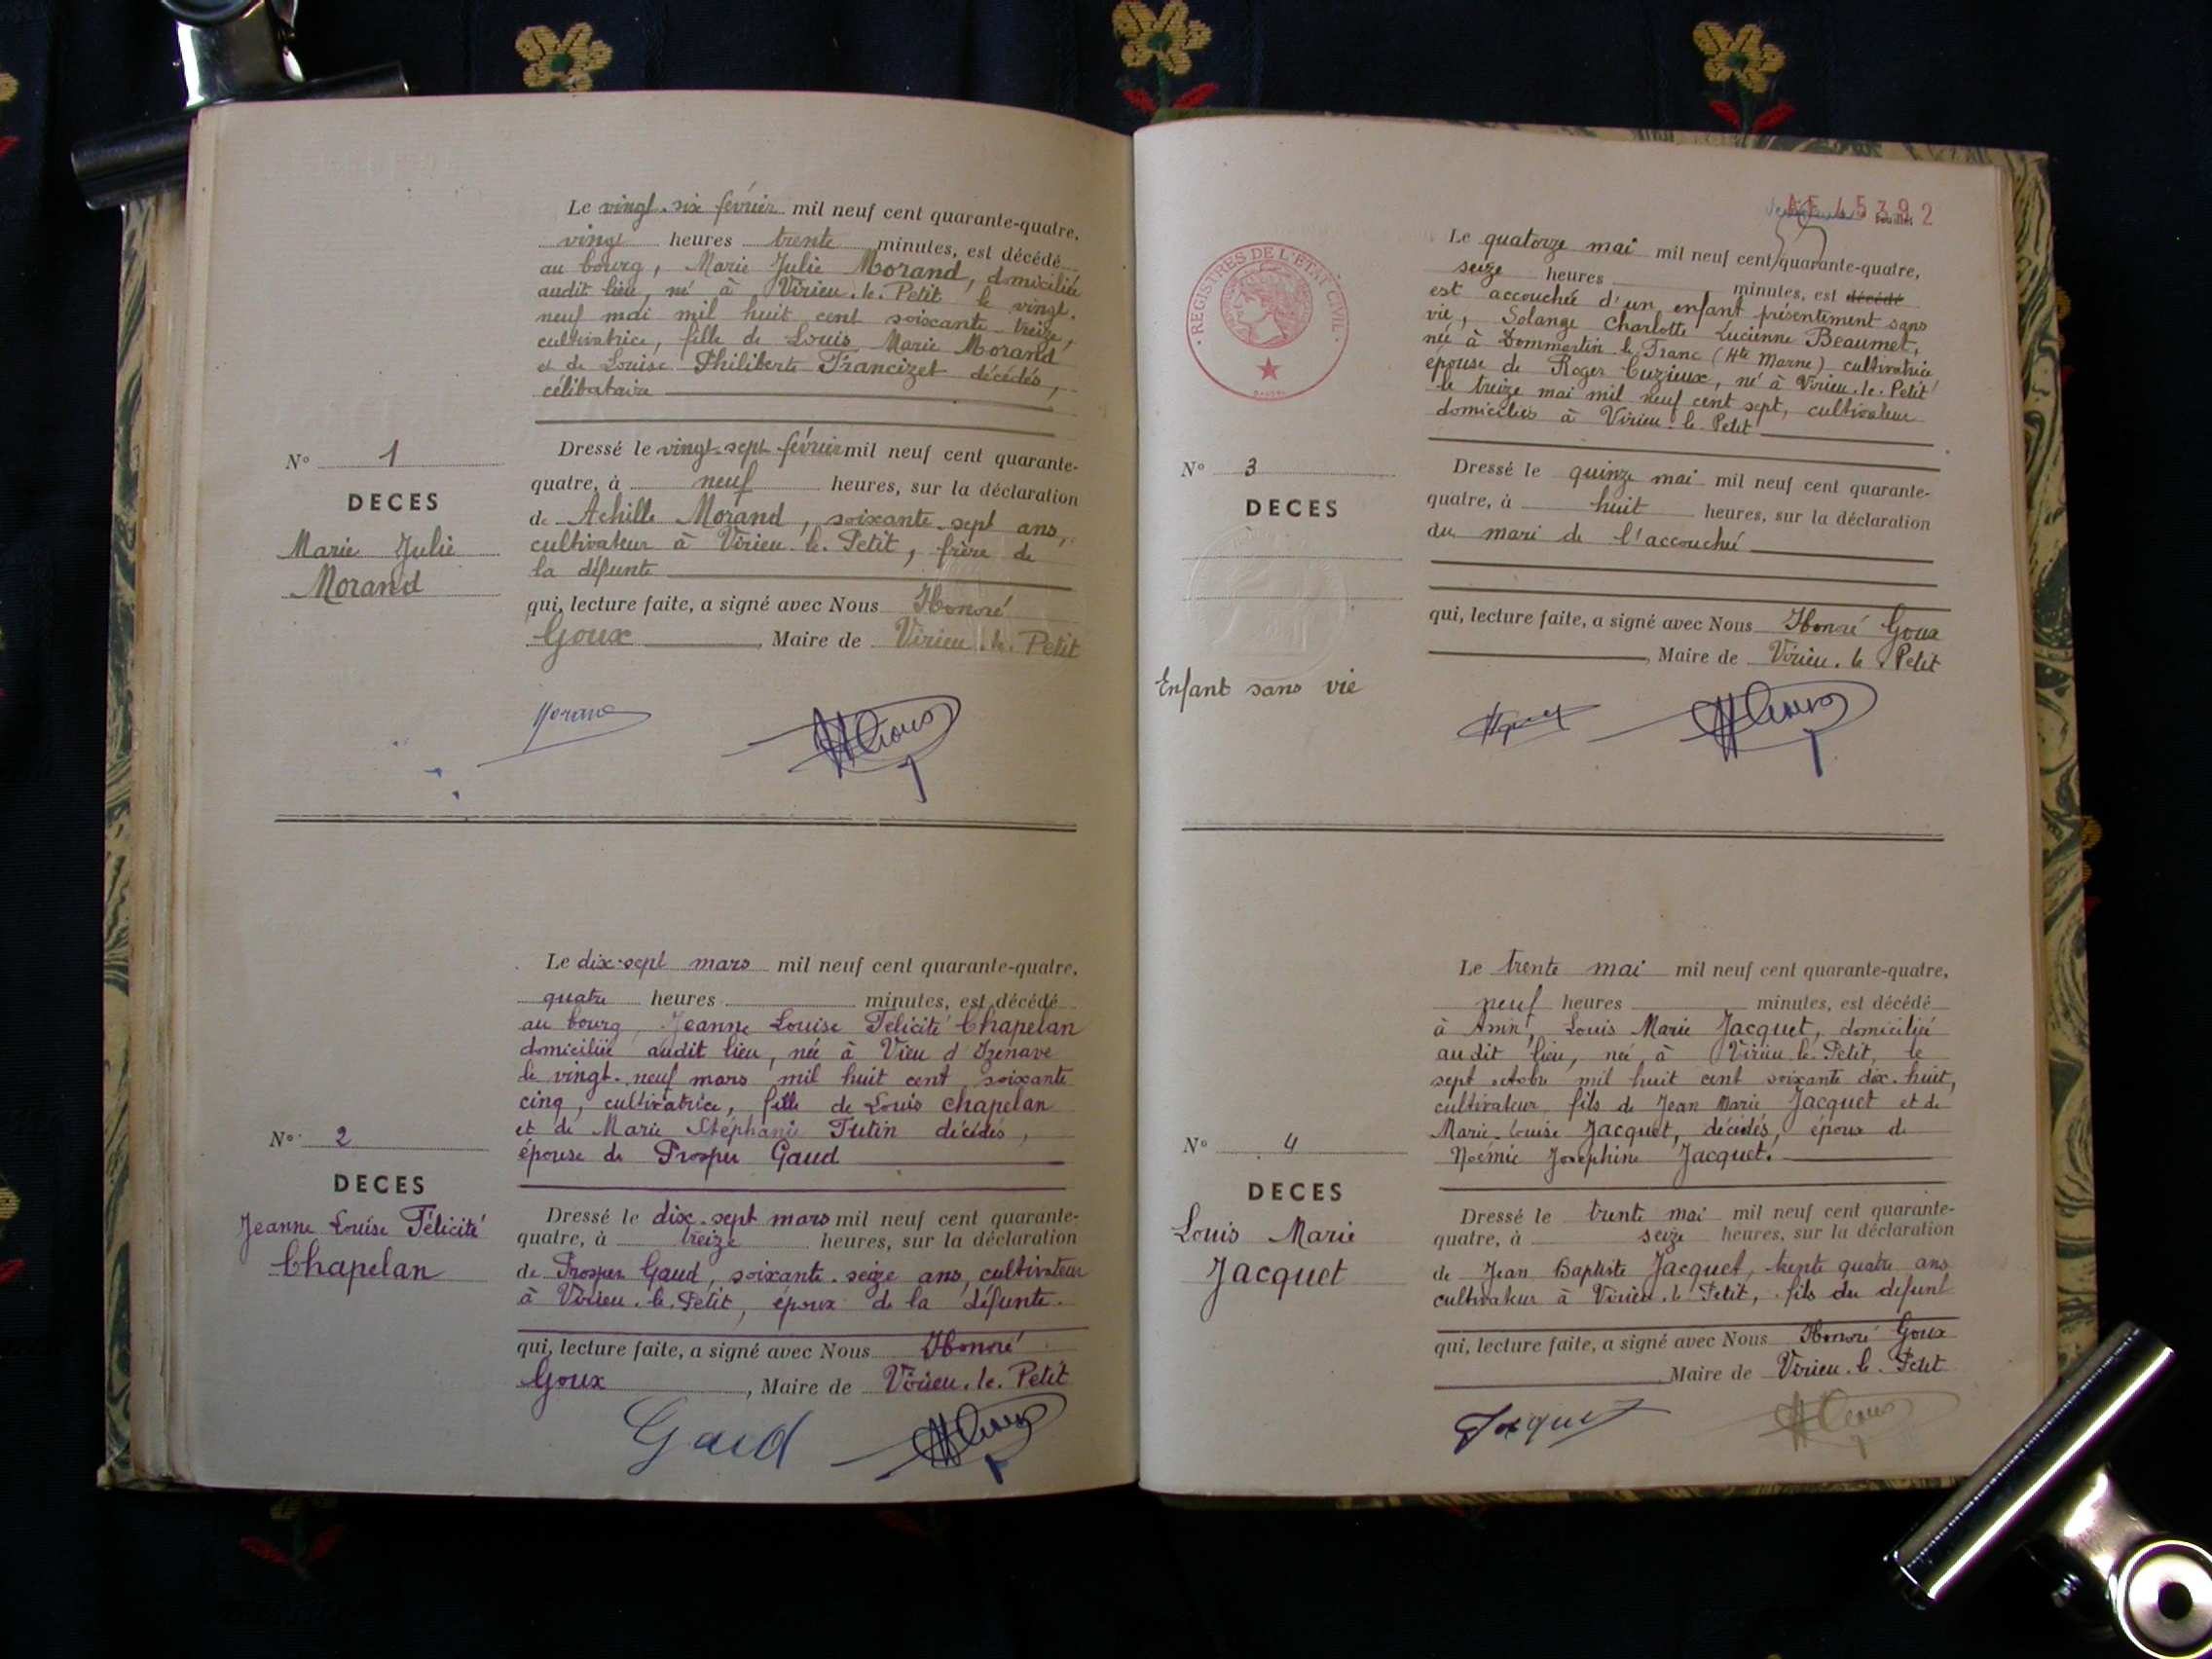 Le vingt-six février mil neuf cent quarante-quatre,
vingt heures trente minutes, est décédé
au bourg, Marie Julie Morand, domiciliée
audit lieu, né à Virieu-le-Petit le vingt-
neuf mai mil huit cent soixante-treize,
cultivatrice, fille de Louis Marie Morand
et de Louise Philiberte Francizet décédés,
célibataire
N° 1
DECES
Marie Julie
Morand
Dressé le vingt-sept février mil neuf cent quarante-
quatre, à neuf heures, sur la déclaration
de Achille Morand, soixante-sept ans,
cultivateur à Virieu-le-Petit, frère de
la défunte
qui, lecture faite, a signé avec Nous Honoré
Goux, Maire de Virieu-le-Petit
Morand
HGoux
Le dix-sept mars mil neuf cent quarante-quatre,
quatre heures minutes, est décédé
au bourg, Jeanne Louise Félicité Chapelan
domiciliée audit lieu, née à Vieu d'Izenave
le vingt-neuf mars mil huit cent soixante
cinq, cultivatrice, fille de Louis Chapelan
et de Marie Stéphanie Tutin décédés,
épouse de Prosper Gaud
N° 2
DECES
Jeanne Louise Félicité
Chapelan
Dressé le dix-sept mars mil neuf cent quarante-
quatre, à treize heures, sur la déclaration
de Prosper Gaud, soixante-seize ans, cultivateur
à Virieu-le-Petit, époux de la défunte.
qui, lecture faite, a signé avec Nous Honoré
Goux, Maire de Virieu-le-Petit
Gaud
HGoux
AF 45392
Feuillet
REGISTRES DE L'ÉTAT CIVIL
Le quatorze mai mil neuf cent quarante-quatre,
seize heures minutes, est décédé
est accouchée d'un enfant présentement sans
vie, Solange Charlotte Lucienne Beaumet,
née à Dommartin le Franc (Hte Marne) cultivatrice
épouse de Roger Cuzieux, né à Virieu-le-Petit
le treize mai mil neuf cent sept, cultivateur
domiciliés à Virieu-le-Petit
N° 3
DECES
Enfant sans vie
Dressé le quinze mai mil neuf cent quarante-
quatre, à huit heures, sur la déclaration
du mari de l'accouchée
qui, lecture faite, a signé avec Nous Honoré Goux
, Maire de Virieu-le-Petit
HGoux
Le trente mai mil neuf cent quarante-quatre,
neuf heures minutes, est décédé
à Amin, Louis Marie Jacquet, domicilié
audit lieu, né à Virieu-le-Petit, le
sept octobre mil huit cent soixante dix-huit,
cultivateur fils de Jean Marie Jacquet et de
Marie-Louise Jacquet, décédés, époux de
Noémie Joséphine Jacquet.
N° 4
DECES
Louis Marie
Jacquet
Dressé le trente mai mil neuf cent quarante-
quatre, à seize heures, sur la déclaration
de Jean Baptiste Jacquet, trente quatre ans
cultivateur à Virieu-le-Petit, fils du défunt
qui, lecture faite, a signé avec Nous Honoré Goux
Maire de Virieu-le-Petit
Jacquet
HGoux